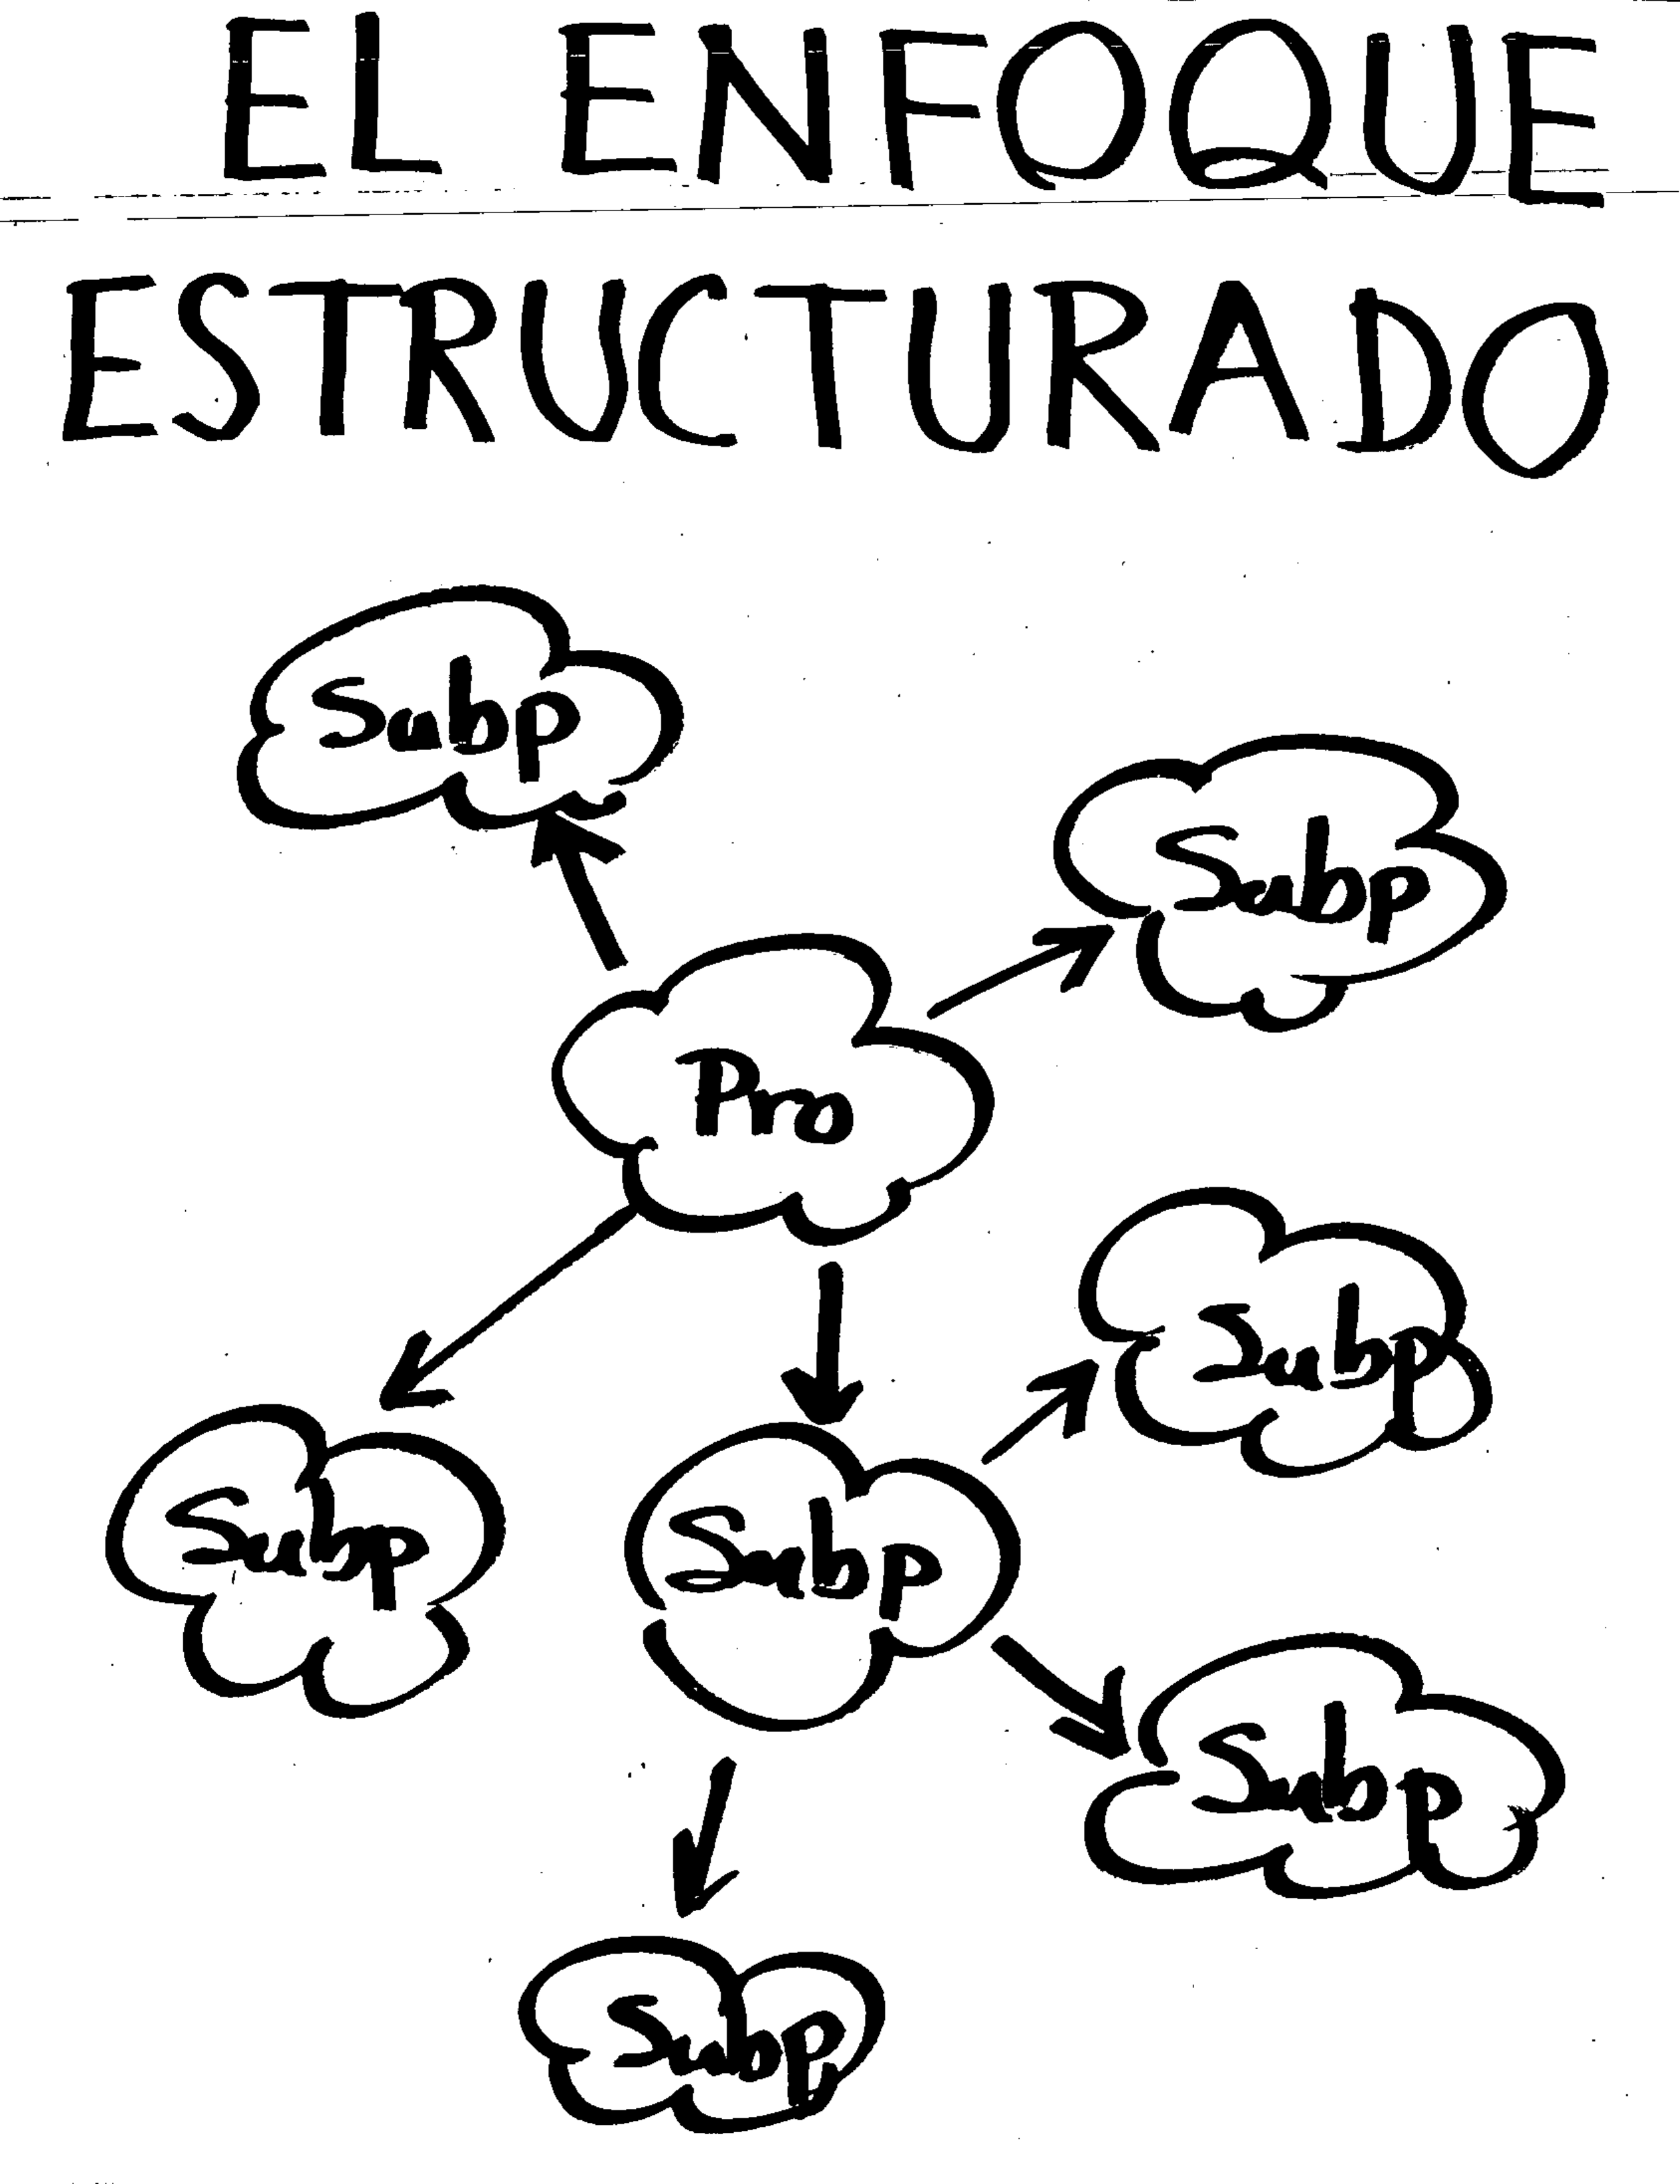 EL ENFOQUE
ESTRUCTURADO
Subp
Subp
Pro
Subp
Subp
Subp
Subp
Subp